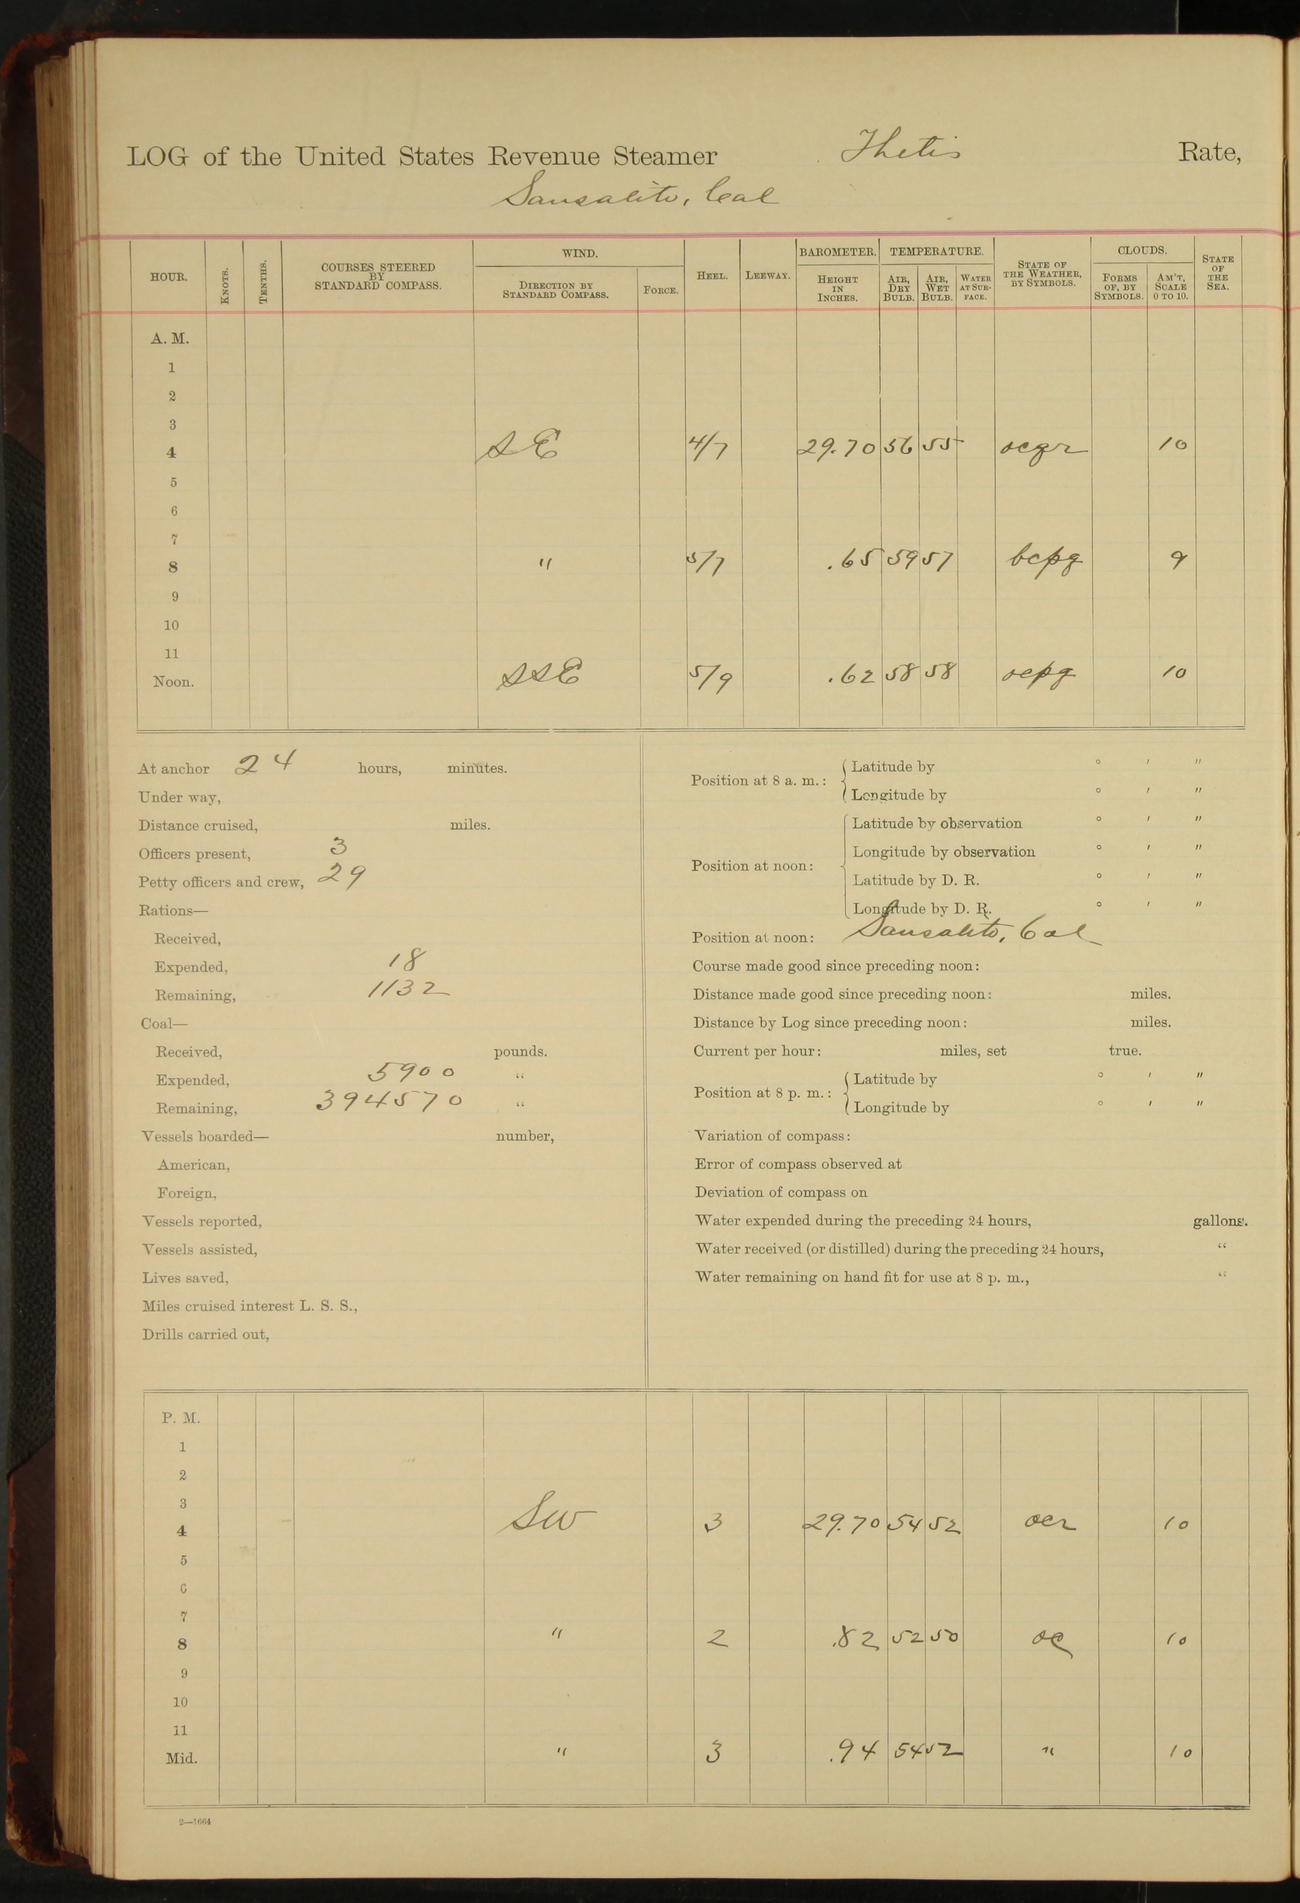 LOG of the United States Revenue Steamer Thetis Rate,
Sausalito, Cal
HOUR. KNOTS. TENTHS. COURSES STEERED BY STANDARD COMPASS. WIND. DIRECTION BY STANDARD COMPASS. FORCE. HEEL. LEEWAY. BAROMETER. HEIGHT IN INCHES. TEMPERATURE. AIR, DRY BULB. AIR, WET BULB. WATER AT SURFACE. STATE OF THE WEATHER, BY SYMBOLS. CLOUDS. FORMS OF, BY SYMBOLS. AM'T, SCALE 0 TO 10. STATE OF THE SEA.
A. M.
1
2
3
4 SE 4/7 29.70 56 55 ocqr 10
5
6
7
8 " 5/7 .65 59 57 bcpq 9
9
10
11
Noon. SSE 5/9 .62 58 58 ocpq 10
At anchor 24 hours, minutes.
Under way,
Distance cruised, miles.
Officers present, 3
Petty officers and crew, 29
Rations—
Received,
Expended, 18
Remaining, 1132
Coal—
Received, pounds.
Expended, 5900 "
Remaining, 394570 "
Vessels boarded— number,
American,
Foreign,
Vessels reported,
Vessels assisted,
Lives saved,
Miles cruised interest L. S. S.,
Drills carried out,
Position at 8 a. m.: Latitude by ° ' "
Longitude by ° ' "
Position at noon: Latitude by observation ° ' "
Longitude by observation ° ' "
Latitude by D. R. ° ' "
Longitude by D. R. ° ' "
Position at noon: Sausalito, Cal
Course made good since preceding noon:
Distance made good since preceding noon: miles.
Distance by Log since preceding noon: miles.
Current per hour: miles, set true.
Position at 8 p. m.: Latitude by ° ' "
Longitude by ° ' "
Variation of compass:
Error of compass observed at
Deviation of compass on
Water expended during the preceding 24 hours, gallons.
Water received (or distilled) during the preceding 24 hours, "
Water remaining on hand fit for use at 8 p. m., "
P. M.
1
2
3
4 SW 3 29.70 54 52 ocr 10
5
6
7
8 " 2 .82 52 50 oc 10
9
10
11
Mid. " 3 .94 54 52 " 10
2—1664